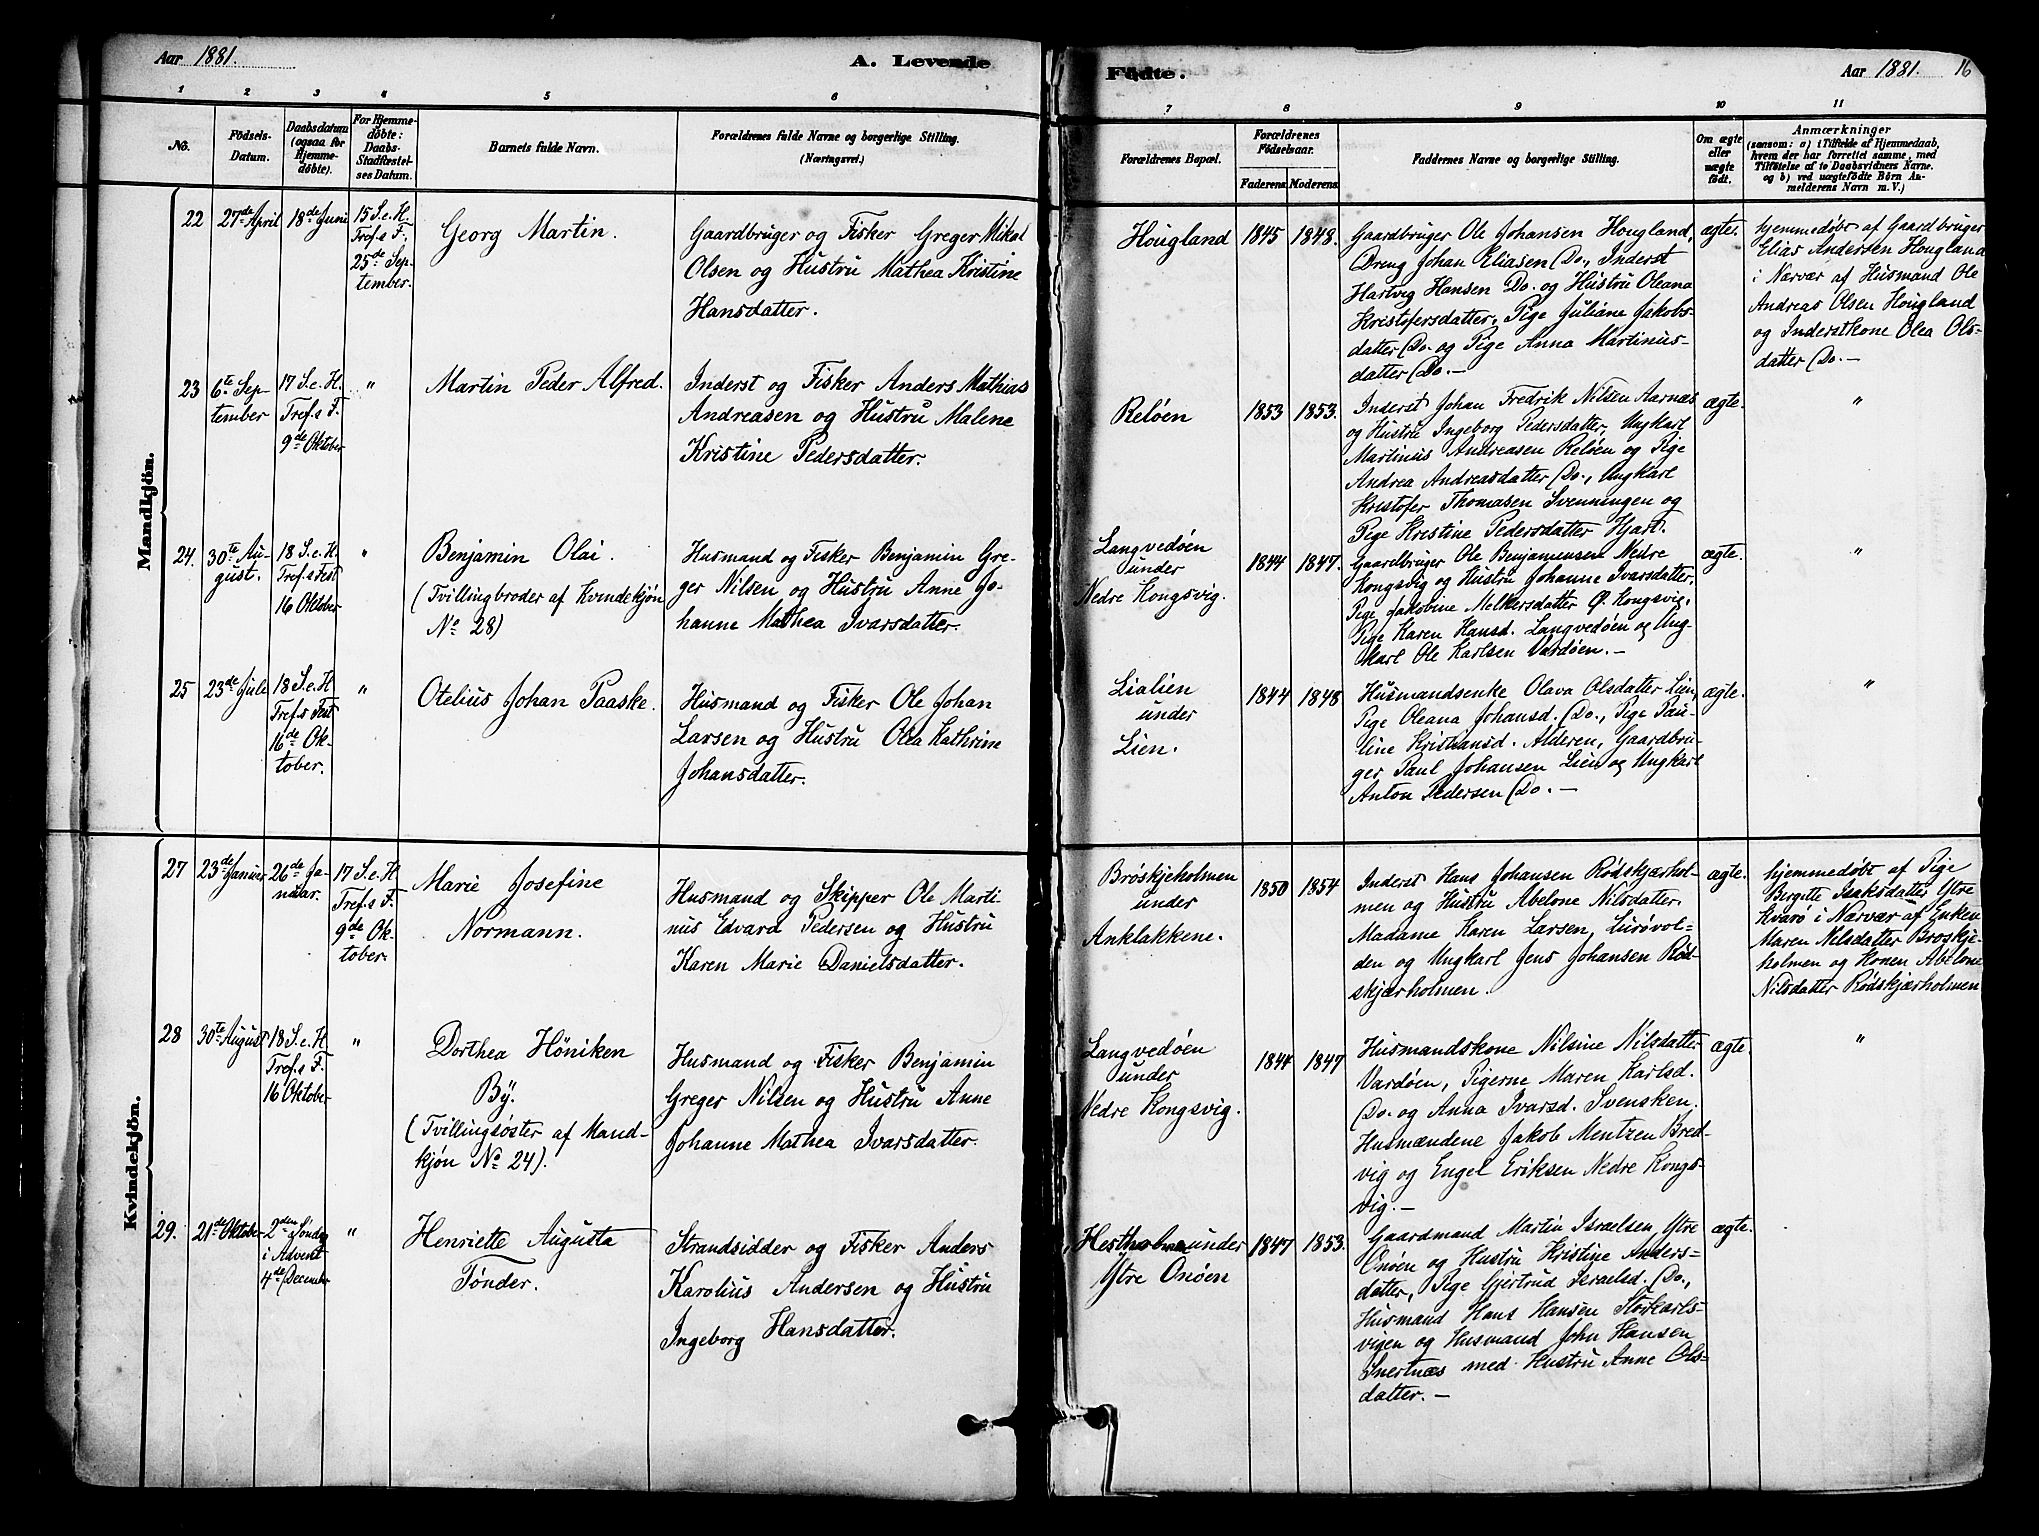 Aar 1881.
A. Levende
1 2 3 4 5 6
No.
Födsels-
Datum.
Daabsdatum
(ogsaa for
Hjemme-
döbte).
For Hjemme-
döbte:
Daabs-
Stadfæstel-
ses Datum.
Barnets fulde Navn.
Forældrenes fulde Navne og borgerlige Stilling.
(Næringsvei.)
Mandkjön.
22
27de April
18de Juni
15 S. e. H.
Tref.s F.
25de Sep-
tember.
Georg Martin.
Gaardbruger og Fisker Greger Mikal
Olsen og Hustru Mathea Kristine
Hansdatter.
23
6te Sep-
tember
17 S. e. H.
Tref.s F.
9de Oktober
"
Martin Peder Alfred.
Inderst og Fisker Anders Mathias
Andreasen og Hustru Malene
Kristine Pedersdatter.
24.
30te Au-
gust.
18 S. e. H.
Tref.s Fest
16 Oktober
"
Benjamin Olai.
(Tvillingbroder af Kvindekjøn
No 28)
Husmand og Fisker Benjamin Gre-
ger Nilsen og Hustru Anne Jo-
hanne Mathea Ivarsdatter.
25
23de Juli
18 S. e. H
Tref.s Fest
16de Ok-
tober.
"
Otelius Johan Paaske.
Husmand og Fisker Ole Johan
Larsen og Hustru Olea Kathrine
Johansdatter.
Kvindekjön.
27
23de Januer
26de Ja-
nuar.
17 S. e. H
Tref.s F.
9de Ok-
tober.
Marie Josefine
Normann.
Husmand og Skipper Ole Marti-
nus Edvard Pedersen og Hustru
Karen Marie Danielsdatter.
28
30te August
18 S. e. H
Tref.s F.
16 Oktober
"
Dorthea Höniken
Bÿ.
(Tvillingsøster af Mand-
kjøn No 24).
Husmand og Fisker Benjamin
Greger Nilsen og Hustru Anne
Johanne Mathea Ivarsdatter.
29.
21de Oktober
2den Søndag
i Advent
4de December
"
Henriette Augusta
Tønder.
Strandsidder og Fisker Anders
Karolius Andersen og Hustru
Ingeborg Hansdatter.
Födte.
Aar 1881. 16
7 8 9 10 11
Forældrenes Bopæl.
Forældrenes
Födselsaar.
Faderens. Moderens.
Faddernes Navne og borgerlige Stilling.
Om ægte
eller
uægte
födt.
Anmærkninger
(saasom: a) i Tilfælde af Hjemmedaab,
hvem der har forrettet samme, med
Tilföielse af to Daabsvidners Navne.
og b) ved uægtefödte Börn An-
melderens Navn m. V.)
Hougland
1845 1848.
Gaardbruger Ole Johansen Hougland,
Dreng Johan Eliasen Do., Inderst
Hartvig Hansen Do. og Hustru Oleana
Kristofersdatter, Pige Juliane Jakobs-
datter Do. og Pige Anna Martinus-
datter Do. —
ægte.
hjemmedøbt af Gaardbruger
Elias Andersen Hougland
i Nærvær af Husmand Ole
Andreas Olsen Hougland
og Inderstkone Olea Ols-
datter Do. —
Reløen
1853 1853.
Inderst Johan Fredrik Nilsen Aarnæs
og Hustru Ingeborg Pedersdatter, Ungkarl
Martinus Andreasen Reløen og Pige
Andrea Andreasdatter Do., Ungkarl
Kristofer Thomasen Svenningen og
Pige Kristine Pedersdatter Hjart.
ægte.
"
Langvedøen
under
Nedre Kongsvig.
1844 1847.
Gaardbruger Ole Benjaminsen Nedre
Kongsvig og Hustru Johanne Ivarsdatter,
Pige Jakobine Melkersdatter Ø. Kongsvig,
Pige Karen Hansd. Langvedøen og Ung-
karl Ole Karlsen Vardøen. —
ægte.
"
Lialien
under
Lien.
1844 1848
Husmandsenke Olava Olsdatter Lien,
Pige Oleana Johansd. Do., Pige Pau-
line Kristiansd. Alderen, Gaardbru-
ger Paul Johansen Lien og Ungkarl
Anton Pedersen Do. —
ægte.
"
Brøskjeholmen
under
Anklakkene.
1850 1854
Inderst Hans Johansen Rødskjærhol-
men og Hustru Abelone Nilsdatter
Madame Karen Larsen, Lurøvol-
den og Ungkarl Jens Johansen Rød-
skjærholmen.
ægte.
hjemmedøbt af Pige
Birgitte Isaksdatter Ytre
Kvarø i Nærvær af Enken
Maren Nilsdatter Brøskje-
holmen og Konen Abelone
Nilsdatter Rødskjærholmen
Langvedøen
under
Nedre Kongsvig.
1844 1847
Husmandskone Nilsine Nilsdatter
Vardøen, Pigerne Maren Karlsd.
Do. og Anna Ivarsd. Svensken.
Husmændene Jakob Mentzen Bred-
vig og Engel Eriksen Nedre Kongs-
vig. —
ægte.
"
Hestholmen under
Ytre Onøen
1847 1853.
Gaardmand Martin Israelsen Ytre
Onøen og Hustru Kristine Anders-
datter, Pige Gjertrud Israelsd. Do.,
Husmand Hans Hansen Storkarls-
vigen og Husmand John Hansen
med Hustru Anne Ols-
datter. —
ægte.